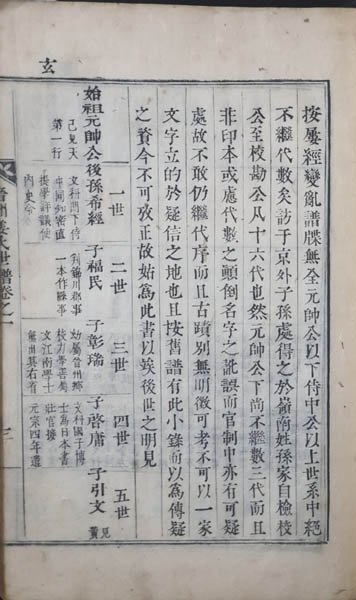 玄
按屢經變亂譜牒無全元帥公以下侍中公以上世系中絶
不繼代數矣訪于京外子孫處得之於嶺南姓孫家自檢校
公至校勘公凡十六代也然元帥公下尚不繼數三代而且
非印本或慮代數之顚倒名字之訛誤而官制中亦有可疑
處故不敢仍繼代序而且古蹟別無明徵可考不可以一家
文字立的於疑信之地也且按舊譜有此小錄而以爲傳疑
之資今不可攷正故始爲此書以俟後世之明見
一世 二世 三世 四世 五世
始祖元帥公後孫希經 子福民 子彰瑞 子啓庸 子引文 見黃
己見天 文科門下侍 判錦川郡事 幼屬晉州鄕 文科國子博
第一行 中同知密直 一本作縣事 校力學善屬 士爲日本書
提學評議使 文江南學士 狀官接
內史令 無出其右者 元宗四年選
世譜卷之一
三